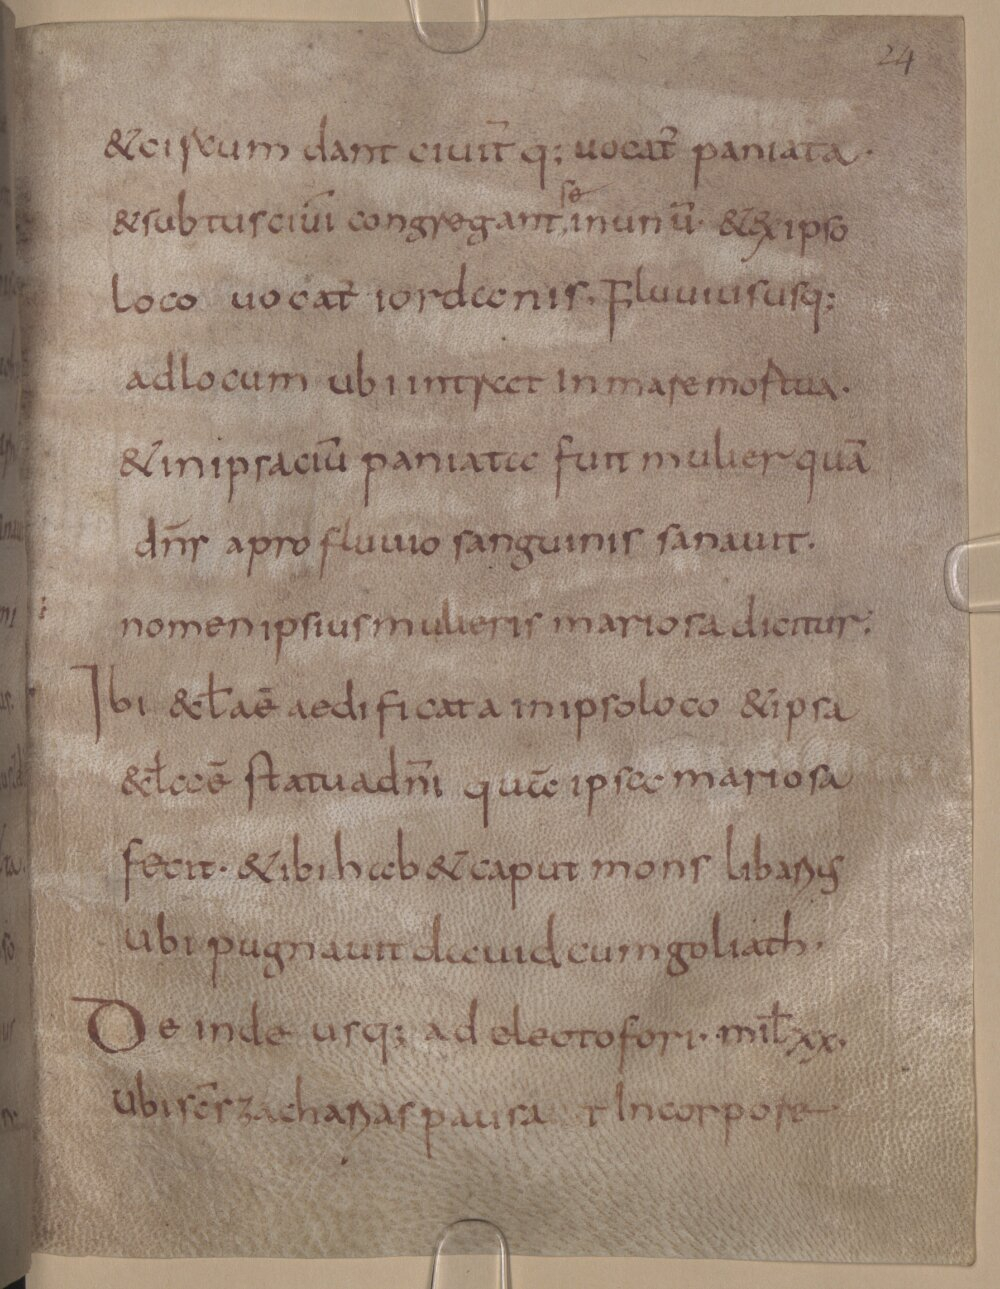 24
& circum dant ciuit̄ q; uocat̄ paniata.
& subtus ciūi congregant se in unū. & ex ipso
loco uocat̄ iordanis. Fluuius usq;
ad locum ubi intrat In mare mortua.
& in ipsa ciū paniatac fuit mulier quā
dn̄s a profluuio sanguinis sanauit.
nomen ipsius mulieris mariosa dicitur;
Ibi & eccl̄a ē aedificata in ipso loco & ipsa
ē statua dn̄i quā ipsa mariosa
fecit. & ibi hab& caput mons libanus
ubi pugnauit dauid cum goliath.
De inde usq; ad eleotofori. mil̄ xx.
ubi sc̄s zacharias pausa t In corpore